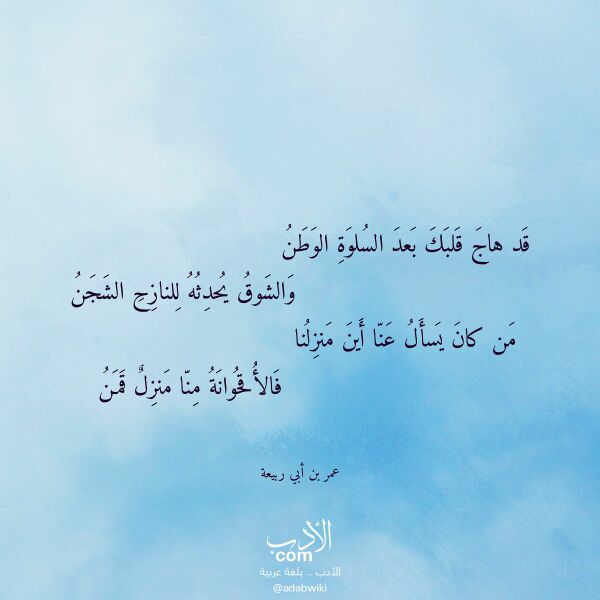 قَد هاجَ قَلبَكَ بَعدَ السُلوَةِ الوَطَنُ
وَالشَوقُ يُحدِثُهُ لِلنازِحِ الشَجَنُ
مَن كانَ يَسأَلُ عَنّا أَينَ مَنزِلُنا
فَالأُقحُوانَةُ مِنّا مَنزِلٌ قَمَنُ
عمر بن أبي ربيعة
الأدب
com
الأدب .. بلغة عربية
@adabwiki